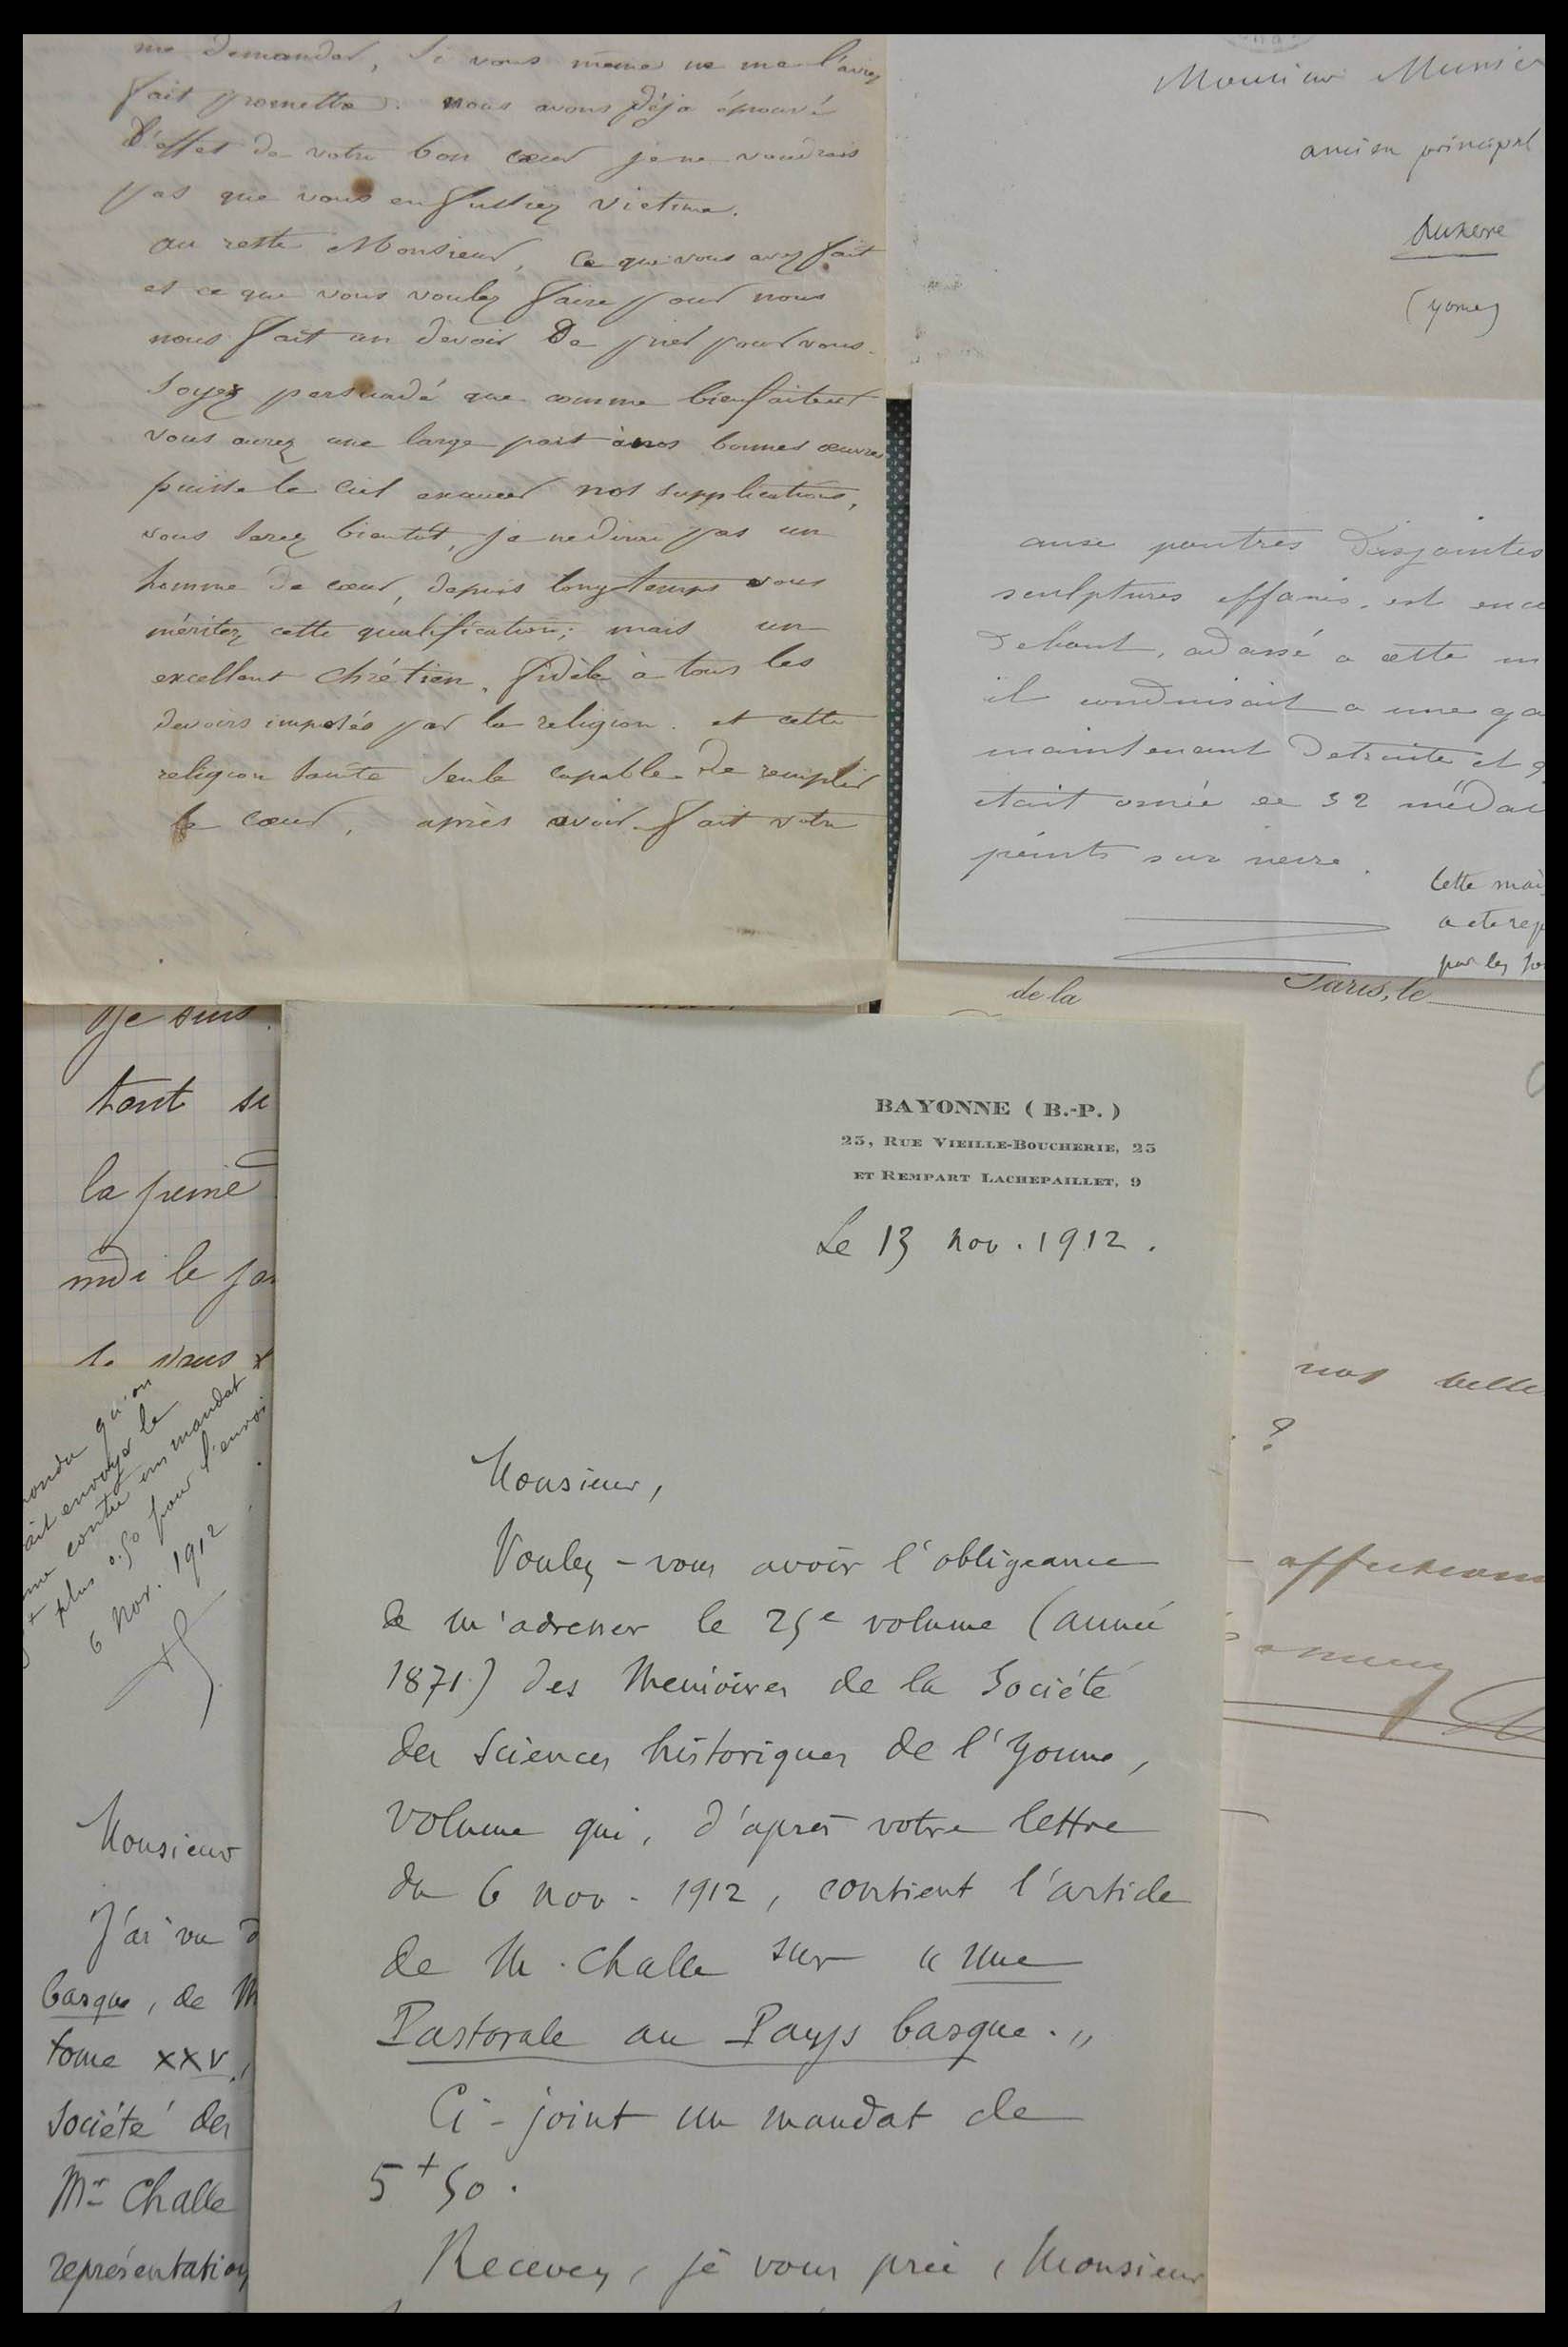 me demander, si vous même ne me l'aviez
fait promettre. nous avons déja éprouvé
l'effet de votre bon cœur je ne voudrais
pas que vous en fussiez victime.
au reste Monsieur, ce que vous avez fait
et ce que vous voulez faire pour nous
nous fait un devoir de prier pour vous.
soyez persuadé que comme bienfaiteur
vous aurez une large part à nos bonnes œuvres
puisse le ciel exaucer nos supplications,
vous serez bientôt, je ne dirai pas un
homme de cœur, depuis longtemps vous
méritez cette qualification; mais un
excellent chrétien, fidèle à tous les
devoirs imposés par la religion. et cette
religion sainte seule capable de remplir
le cœur, après avoir fait votre
Monsieur
ancien principal
Auxerre
(Yonne)
poutres disjointes
sculptures effacées, est enco
debout, adossé a cette m
il conduisait a une ga
maintenant detruite et q
était ornée de 32 médai
peints sur verre.
Cette mais
a ete rep
par les
de la
Paris, le
je suis
tant si
la peine
midi le
vous
qu'on
envoyer le
contre un mandat
plus 0.50 pour l'envoi
6 nov. 1912
Monsieur
J'ai vu d
basque, de M
tome XXV,
Société des
Mr Challe
représentation
BAYONNE (B.-P.)
25, RUE VIEILLE-BOUCHERIE, 25
ET REMPART LACHEPAILLET, 9
Le 13 nov. 1912.
Monsieur,
Voulez-vous avoir l'obligeance
de m'adresser le 25e volume (année
1871) des Memoires de la Société
des Sciences historiques de l'Yonne,
volume qui, d'après votre lettre
du 6 nov. 1912, contient l'article
de M. Challe sur "une
Pastorale au Pays basque."
Ci-joint un mandat de
5f50.
Recevez, je vous prie, Monsieur
nos belle
?
affection